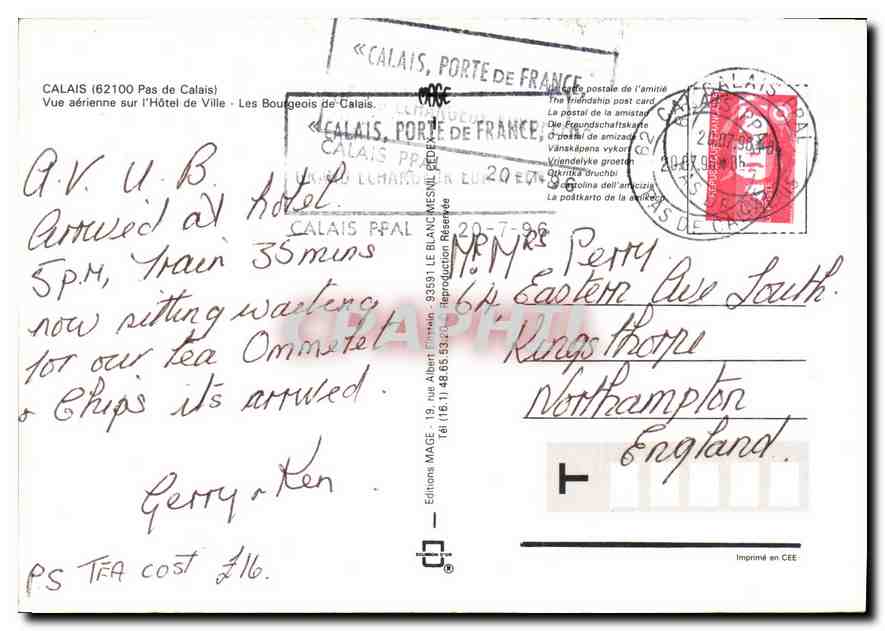 CALAIS (62100 Pas de Calais)
Vue aérienne sur l'Hôtel de Ville - Les Bourgeois de Calais.
A.V. U.B.
Arrived at hotel.
5 P.M, Train 35 mins
now sitting waiting
for our tea Ommelet
& Chips its arrived.
Gerry & Ken.
PS TEA COST £16.
«CALAIS, PORTE DE FRANCE,
MAGE
«CALAIS, PORTE DE FRANCE,
CALAIS PPAL
20-7-96
CALAIS PPAL 20-7-96
Editions MAGE - 19, rue Albert Einstein - 93591 LE BLANC MESNIL CEDEX
Tél (16.1) 48.65.53.20 © Reproduction Réservée
®
La carte postale de l'amitié
The friendship post card
La postal de la amistad
Die Freundschaftskarte
O postal de amizade
Vänskapens vykort
Vriendelyke groeten
Otkritka druchbi
La cartolina dell'amicizia
La poŝtkarto de la amikeco
CALAIS PPAL
20.07.96
PAS DE CALAIS
Mr. Mrs Perry
64, Eastern Ave South.
Kingsthorpe
Northampton
England.
T
Imprimé en CEE
CPAPHIL